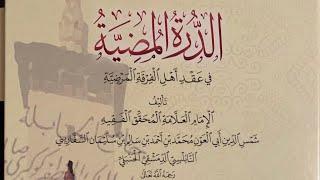 الدُّرَّةُ المُضِيَّةُ
فِي عَقْدِ أَهْلِ الفِرْقَةِ المَرْضِيَّةِ
تَأْلِيفُ
الإِمَامِ العَلَّامَةِ المُحَقِّقِ الفَقِيهِ
شَمْسِ الدِّينِ أَبِي العَوْنِ مُحَمَّدِ بْنِ أَحْمَدَ بْنِ سَالِمِ بْنِ سُلَيْمَانَ السَّفَّارِينِيِّ
النَّابُلُسِيِّ الدِّمَشْقِيِّ الحَنْبَلِيِّ
رَحِمَهُ اللهُ تَعَالَى